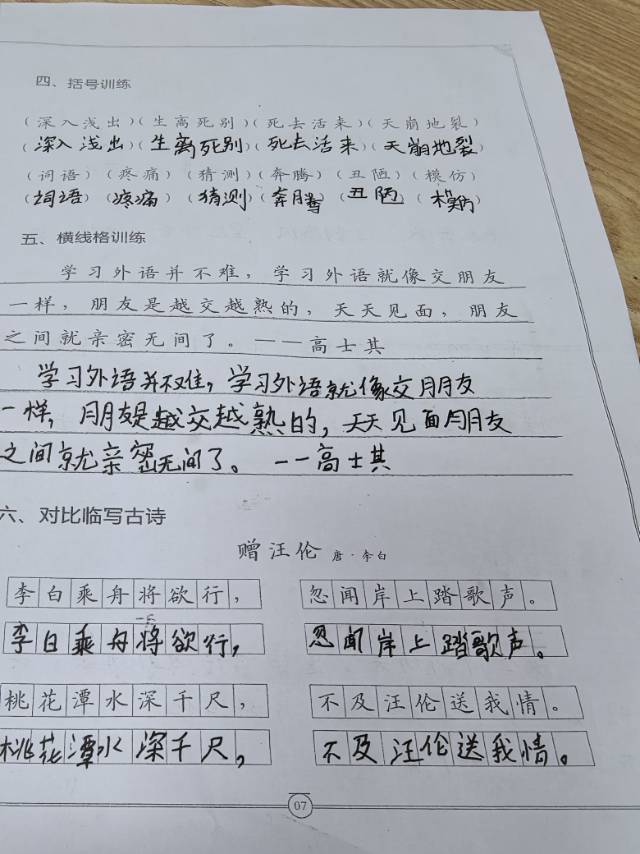 四、括号训练
(深入浅出)(生离死别)(死去活来)(天崩地裂)
(深入浅出)(生离死别)(死去活来)(天崩地裂)
(词语)(疼痛)(猜测)(奔腾)(丑陋)(模仿)
(词语)(疼痛)(猜测)(奔腾)(丑陋)(模仿)
五、横线格训练
学习外语并不难，学习外语就像交朋友
一样，朋友是越交越熟的，天天见面，朋友
之间就亲密无间了。——高士其
学习外语并不难，学习外语就像交朋友
一样，朋友是越交越熟的，天天见面朋友
之间就亲密无间了。——高士其
六、对比临写古诗
赠汪伦 唐·李白
李白乘舟将欲行，忽闻岸上踏歌声。
李白乘舟将欲行，忽闻岸上踏歌声。
桃花潭水深千尺，不及汪伦送我情。
桃花潭水深千尺，不及汪伦送我情。
07